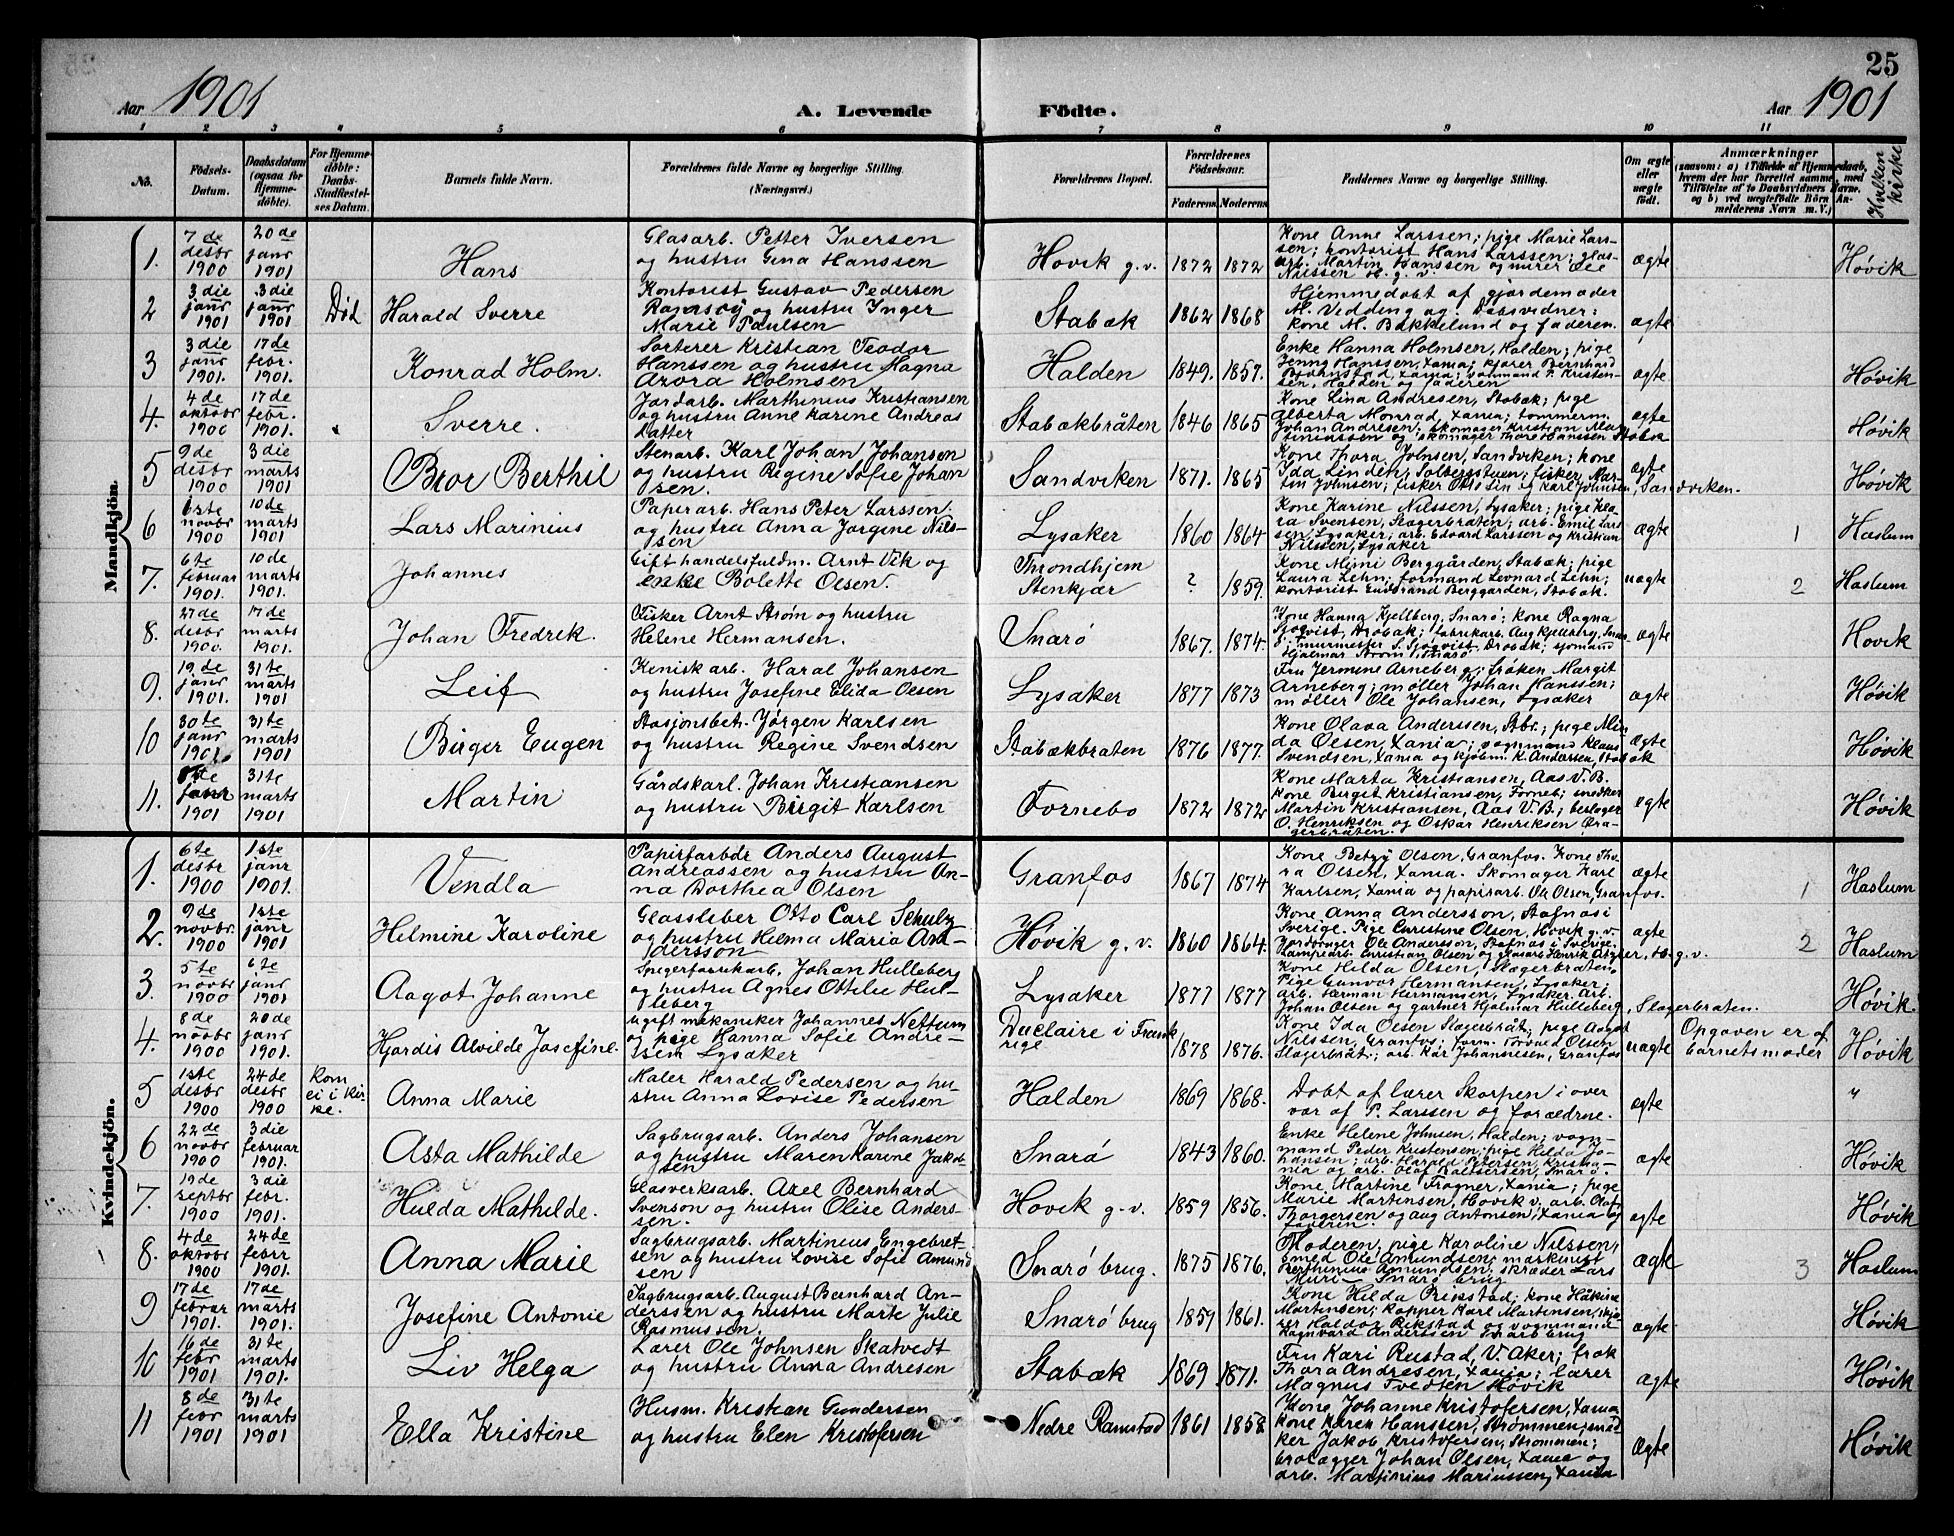 25
Aar 1901
A. Levende
Födte.
Aar 1901
1 2 3 4 5 6 7 8 9 10 11
No.
Födsels-Datum.
Daabsdatum (ogsaa for Hjemmedöbte).
For Hjemmedöbte: Daabs-Stadfæstelses Datum.
Barnets fulde Navn.
Forældrenes fulde Navne og borgerlige Stilling. (Næringsvei.)
Forældrenes Bopæl.
Forældrenes Födselsaar.
Faderens Moderens
Faddernes Navne og borgerlige Stilling.
Om ægte eller uægte födt.
Anmærkninger
(saasom: a) i Tilfælde af Hjemmedaab, hvem der har forrettet samme, med Tilföielse af to Daabsvidners Navne. og b) ved uægtefödte Börn Anmelderens Navn m. V.)
Hvilken kirke
Mandkjön.
1. 7de desbr 1900 20de janr 1901 Hans
Glasarb. Petter Iversen
og hustru Gina Hanssen
Høvik g.v. 1872 1872
Kone Anne Larssen; pige Marie Lars-
sen; kontorist Hans Larssen; glas-
arb. Martin Hanssen og murer Ole
Nilssen H. g.v.
ægte Høvik
2 3die janr 1901 3die janr 1901 Død Harald Sverre
Kontorist Gustav Pedersen
Ramsöy og hustru Inger
Marie Paulsen
Stabæk 1862 1868
Hjemmedøbt af gjordemoder
M. Vedding og. Dåbsvidner:
kone M. Bakkelund og faderen.
ægte
3 3die janr 1901. 17de febr. 1901. Konrad Holm.
Sorterer Kristian Teodor
Hanssen og hustru Magna
Arora Holmsen
Halden 1849. 1857.
Enke Hanna Holmsen, Halden; pige
Jenny Hanssen, Xania; kjører Bernhard
sen, Halden og faderen
ægte Høvik
4. 4de oktobr 1900 17de febr. 1901. Sverre.
Jordarb. Marthinius Kristiansen
og hustru Anne Karine Andreas
datter
Stabækbråten 1846 1865
Kone Lina Andresen, Stabæk; pige
Alberta Monrad, Xania; tømmerm.
Johan Andresen, skomager Kristian
og skomager Thore Hanssen Stabæk
ægte Høvik
5 9de desbr 1900 3die marts 1901 Bror Berthil
Stenarb. Karl Johan Johansen
og hustru Regine Sofie Johan
sen.
Sandviken 1871. 1865
Kone Thora Johnsen, Sandviken; kone
Ida Linden, Solbergstuen; fisker Mar-
tin Johnsen; fisker Otto sen og Karl Johnsen, Sandviken.
ægte Høvik
6 1ste novbr 1900 10de marts 1901 Lars Marinius
Papirarb. Hans Peter Larssen.
og hustru Anna Jørgine Nils-
sen
Lysaker 1860 1864
Kone Karine Nilssen, Lysaker; pige Kla-
ra Svensen, Slagerbråten; arb. Emil Lars
sen, Lysaker; arb. Edvard Larssen og Kristian
Nilssen, Lysaker
ægte 1 Haslum
7. 6te februar 1901. 10de marts 1901. Johannes
Gift handelsfuldm. Arnt Vik og
enke Bolette Olsen.
Throndhjem
Stenkjær ? 1859.
Kone Mimi Berggården, Stabæk; pige
Laura Lehn; formand Leonard Lehn;
kontorist Gudbrand Berggården, Stabæk.
uægte 2 Haslum
8. 27de desbr 1900. 17de marts 1901. Johan Fredrik.
Fisker Arnt Strøm og hustru
Helene Hermansen.
Snarø 1867. 1874.
Kone Hanna Kjellberg, Snarø; kone Ragna
Sjøqvist, Drøbak; fabrikarb. Aug Kjellberg, Snar-
ø; murmester S. Sjøqvist, Drøbak; sjømand
Hjalmar Strøm, Snarø
ægte Høvik
9. 19de janr 1901. 31te marts 1901 Leif
Kemisk arb. Haral Johansen
og hustru Josefine Elida Olsen
Lysaker 1877 1873
Fru Jermine Arneberg; frøken Margit
Arneberg; møller Johan Hanssen;
møller Ole Johansen, Lysaker
ægte Høvik
10 30te janr 1901 31te marts 1901 Birger Eugen
Stasjonsbet. Jörgen Karlsen
og hustru Regine Svendsen
Stabækbråten 1876 1877.
Kone Olava Anderssen, Stbr.; pige Min
da Olsen, Xania; vognmand Klaus
Svendsen, Xania og kjøbm. K. Andersen, Stabæk
ægte Høvik
11. janr 1901 31te marts 1901 Martin
Gårdskarl. Johan Kristiansen
og hustru Birgit Karlsen
Fornebo 1872 1872
Kone Marta Kristiansen, Aas V.B.
Kone Birgit Kristiansen, Forneb; snedker
Martin Kristiansen, Aas V.B.;
O. Henriksen og Oskar Henriksen
ægte Høvik
Kvindekjön.
1. 6te desbr 1900 1ste janr 1901. Vendla
Papirfarbdr Anders August
Andreassen og hustru An-
na Dorthea Olsen
Granfos 1867 1874
Kone Betzy Olsen, Granfos. Kone Tho
ra Olsen, Xania. Skomager Karl
Karlsen, Xania og papirarb. Ole Olsen, Granfos.
ægte 1 Haslum
2. 9de novbr. 1900 1ste janr 1901 Helmine Karoline
Glassleber Otto Carl Schulz
og hustru Helma Maria An-
dersson
Høvik g.v. 1860 1864.
Kone Anna Andersson, Stafnäs i
Sverige. Pige Christine Olsen, Høvik g.v.
Jordbruger Ole Andersson, Stafnäs i Sverige.
Lampearb. Christian Olsen og glasarb Henrik H. g.v.
ægte 2 Haslum
3. 5te novbr 1900 6te janr 1901 Aagot Johanne
Spigerfabrikarb. Johan Hulleberg
og hustru Agnes Ottilie Hul-
leberg
Lysaker 1877 1877
Kone Hilda Olsen, Slagerbraten,
Pige Gunvor Hermansen, Lysaker;
arb. Herman Hermansen, Lysaker. Arb.
Johan Olsen og gartner Hjalmar Hulleberg, Slagerbraten.
ægte Høvik.
4. 8de novbr 1900 20de janr 1901 Hjørdis Alvilde Josefine.
Ugift mekaniker Johannes Nettum
og pige Hanna Sofie Andre-
sen Lysaker
Duclaire i Frank
rige 1878 1876.
Kone Ida Olsen Slagerbråt.; pige Aagot
Nilssen, Granfos; form. Torvald Olsen
Slagerbråt.; arb. Kar Johannesen, Granfos
uægte
Opgaven er af
barnets moder
Høvik
5 1ste desbr 1900 24de desbr 1900 kom ei i kir- ke. Anna Marie
Maler Harald Pedersen og hu-
stru Anna Lovise Pedersen
Halden 1869 1868.
Døbt af lærer Skorpen i over
vær af P. Larssen og forældrne.
ægte "
6 22de novbr 1900 3die februar 1901. Asta Mathilde
Sagbrugsarb. Anders Johansen
og hustru Maren Karine Jakob
sen
Snarø 1843 1860.
Enke Helene Johnsen, Halden; vogn-
mand Peder Kristensen; pige Hilda Jo-
hansen; arb. Harald Petersen, Kristia-
nia og arb. Olaf Snarø.
ægte Høvik
7. 19de septbr 1900 3die febr. 1901. Hulda Mathilde.
Glasverksarb. Axel Bernhard
Svenson og hustru Olise Anders-
sen.
Høvik g.v. 1859 1856.
Kone Martine Frogner, Xania; pige
Marie Martensen, Høvik v. arb. Olaf
Thorgersen og Aug Antonsen, Xania og
faderen.
ægte Høvik
8. 4de oktobr 1900 24de febrr 1901. Anna Marie
Sagbrugsarb. Martinius Engebret-
sen og hustru Lovise Sofie Amund
sen
Snarø brug. 1875 1876.
Moderen, pige Karoline Nilssen,
smed Ole Amundsen; maskinist
Berthinius Amundsen. skræder Lars
Muri - Snarø brug
ægte 3 Haslum
9 17de febrar 1901. 17de marts 1901. Josefine Antonie
Sagbrugsarb. August Bernhard An-
derssen og hustru Marte Julie
Rasmussen.
Snarø brug 1859 1861.
Kone Hilda Rikstad; kone Håkine
Martensen; kopper Karl Martensen,
rer Haldor Rikstad og vognmand
Ragnvard Anderssen Snarø brug
ægte Høvik
10 16de febr 1901 31te marts 1901. Liv Helga
Lærer Ole Johnsen Skatvedt
og hustru Anna Andresen
Stabæk 1869 1871.
Fru Kari Rustad, V. Aker; frøk
Thora Andresen, Xania; lærer
Magnus Tvedten Høvik
ægte Høvik
11 8de febr 1901 31te marts 1901 Ella Kristine
Husm. Kristian Gundersen
og hustru Elen Kristofersen
Nedre Ramstad 1861 1858
Kone Johanne Kristofersen, Xania,
kone Karen Hanssen, Strømmen; sned
ker Jakob Kristofersen, Strømmen;
brolægger Johan Olsen, Xania og
arb. Martinius Mariussen, Xania
ægte Høvik